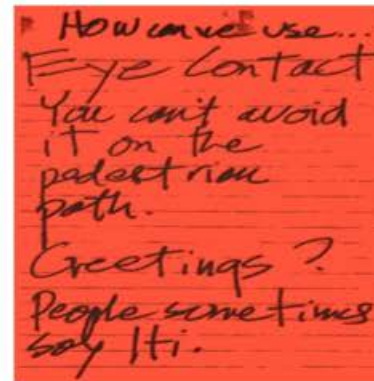 How can we use...
Eye Contact
You can't avoid
it on the
pedestrian
path.
Greetings?
People sometimes
say Hi.